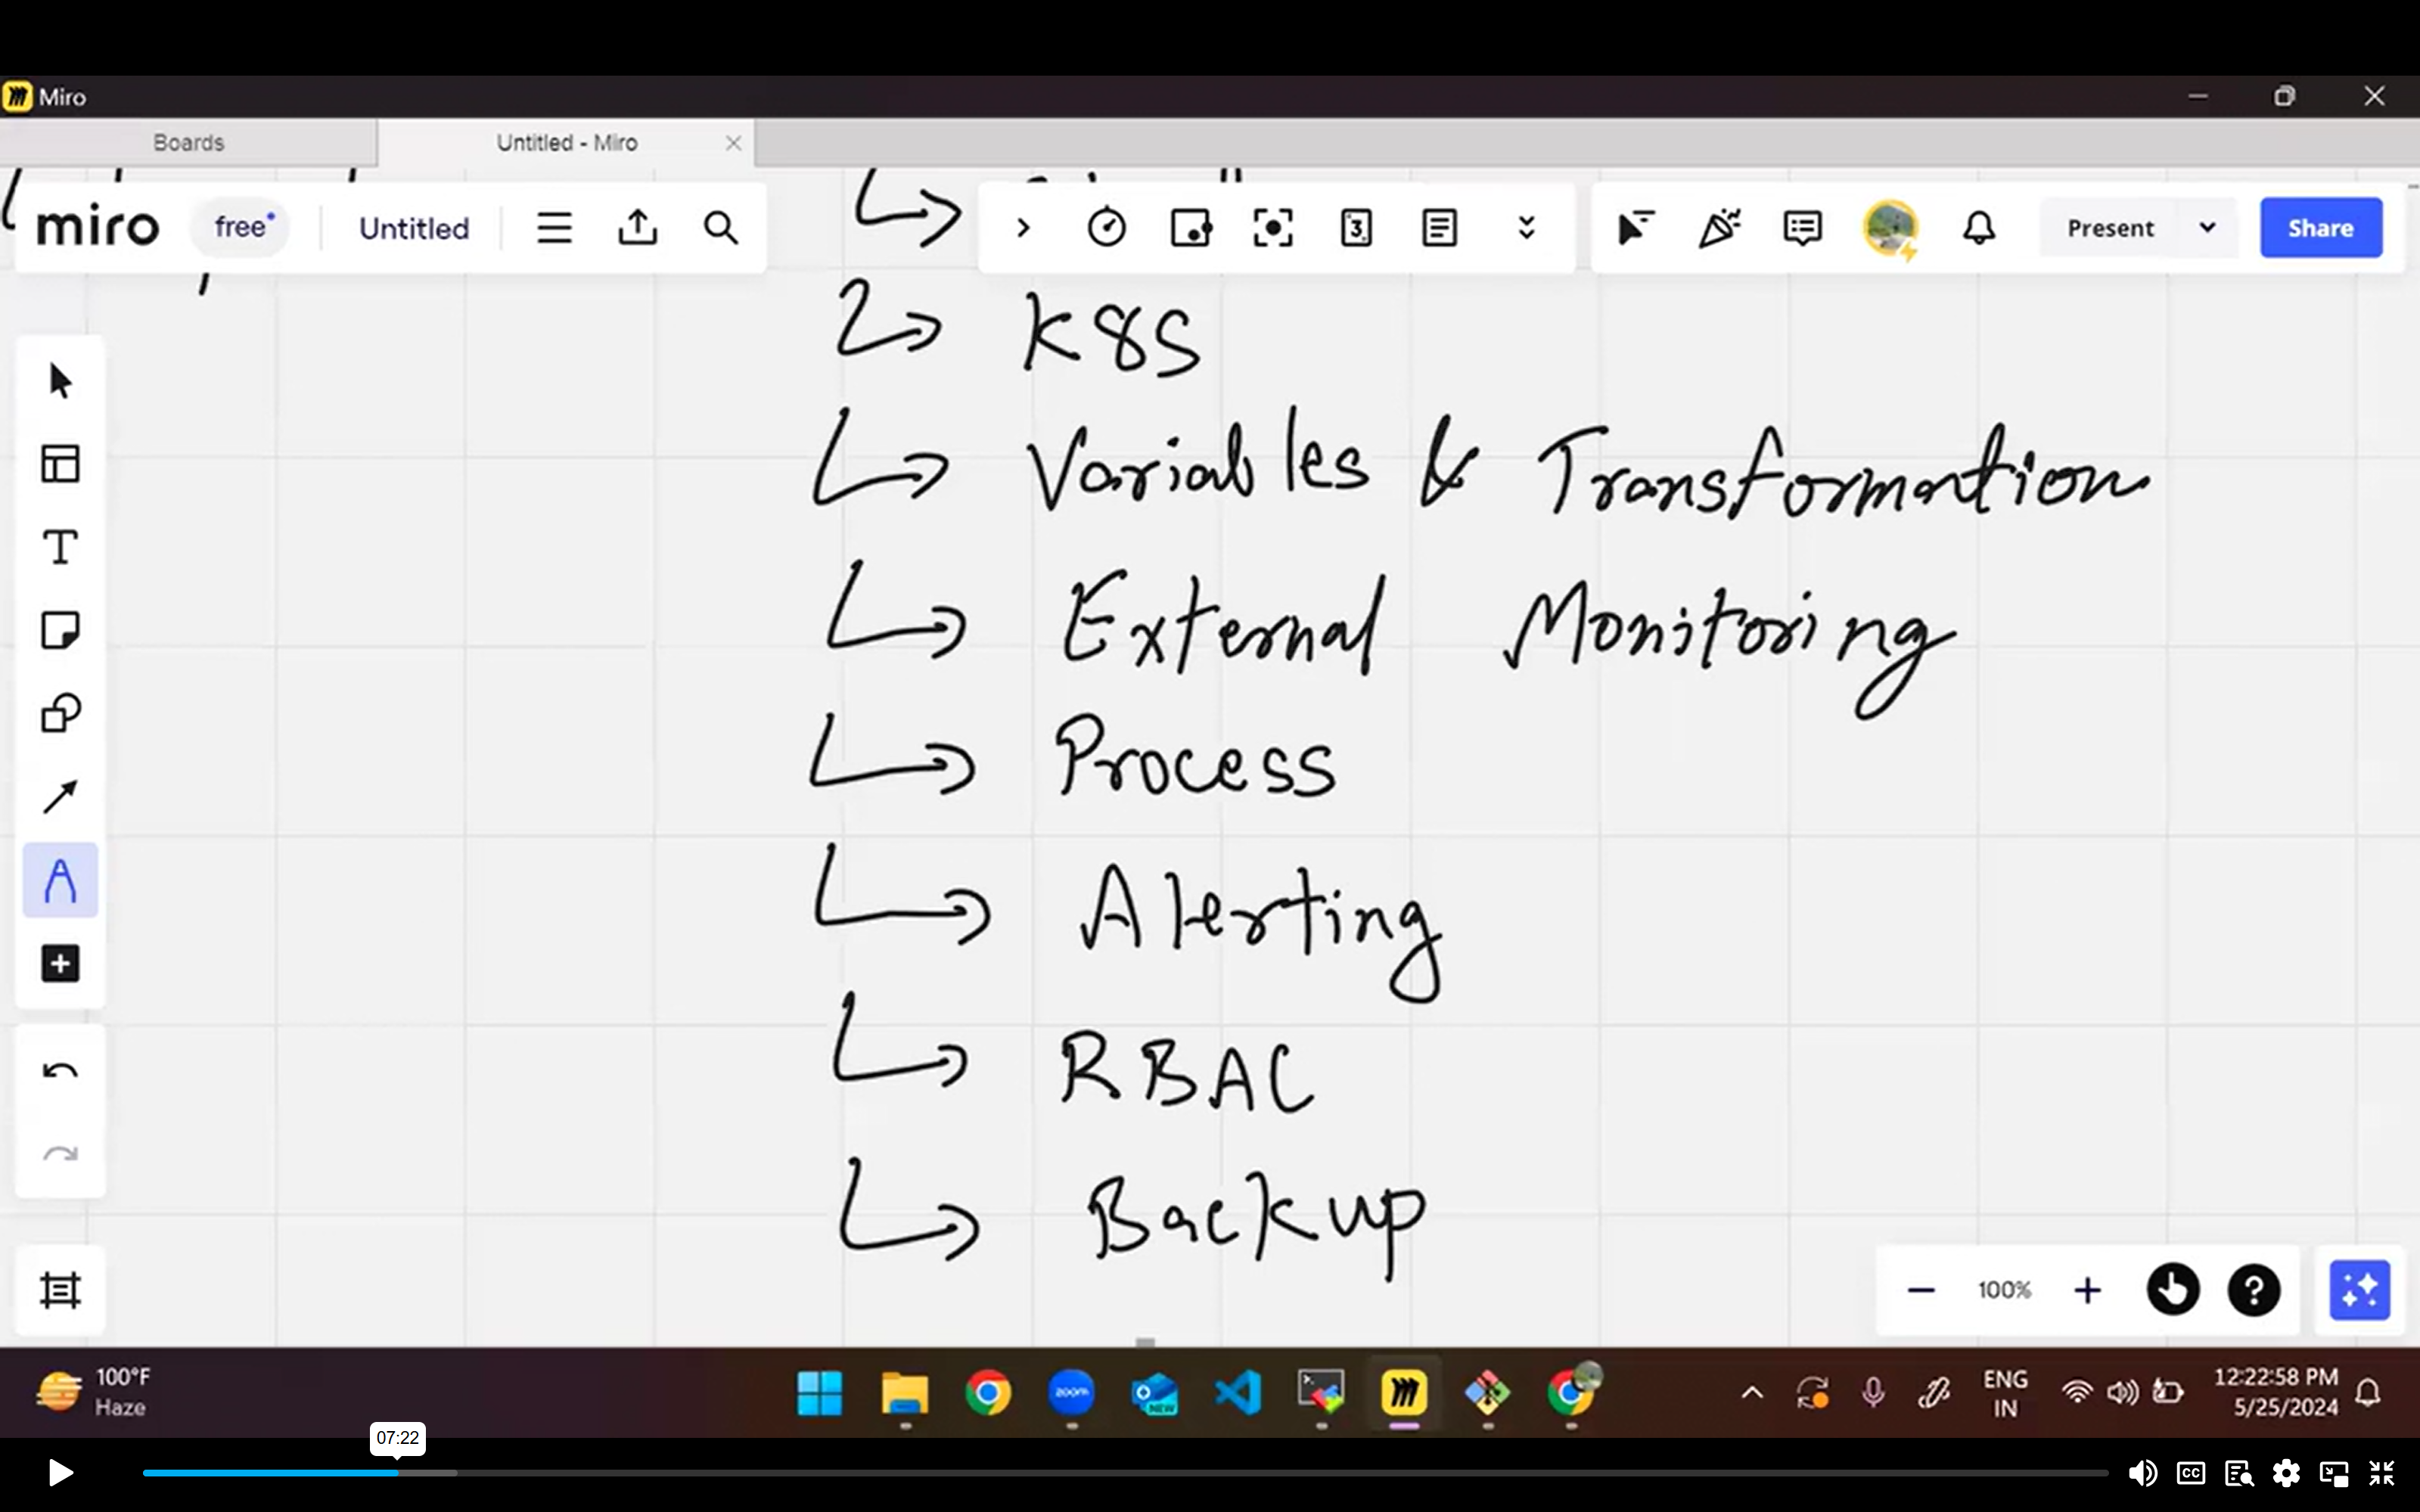 Miro
Boards
Untitled - Miro
miro
free
Untitled
3
Present
Share
K8S
Variables & Transformation
External Monitoring
Process
Alerting
RBAC
Backup
100%
?
100°F
Haze
zoom
NEW
ENG
IN
12:22:58 PM
5/25/2024
07:22
CC